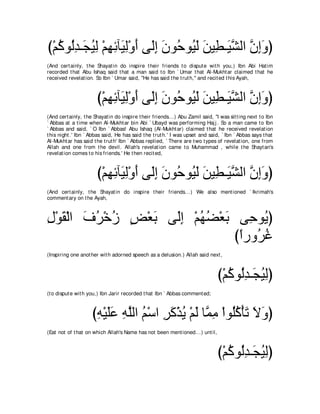 (وَإِنَّ الشَّيَـطِينَ لَيُوحُونَ إِلَى أَوْلِيَآئِهِمْ لِيُجَـدِلُوكُمْ)
(And certainly, the Shayatin do inspire their friends to dispute with you,) Ibn Abi Hatim
recorded that Abu Ishaq said that a man said to Ibn `Umar that Al-Mukhtar claimed that he
received revelation. So Ibn `Umar said, "He has said the truth,'' and recited this Ayah,
(وَإِنَّ الشَّيَـطِينَ لَيُوحُونَ إِلَى أَوْلِيَآئِهِمْ)
(And certainly, the Shayatin do inspire their friends...) Abu Zamil said, "I was sitting next to Ibn
`Abbas at a time when Al-Mukhtar bin Abi `Ubayd was performing Hajj. So a man came to Ibn
`Abbas and said, `O Ibn `Abbas! Abu Ishaq (Al-Mukhtar) claimed that he received revelation
this night.' Ibn `Abbas said, He has said the truth.' I was upset and said, `Ibn `Abbas says that
Al-Mukhtar has said the truth' Ibn `Abbas replied, `There are two types of revelation, one from
Allah and one from the devil. Allah's revelation came to Muhammad , while the Shaytan's
revelation comes to his friends.' He then recited,
(وَإِنَّ الشَّيَـطِينَ لَيُوحُونَ إِلَى أَوْلِيَآئِهِمْ)
(And certainly, the Shayatin do inspire their friends...) We also mentioned `Ikrimah's
commentary on the Ayah,
(يُوحِى بَعْضُهُمْ إِلَى بَعْضٍ زُخْرُفَ الْقَوْلِ
غُرُوراً)
(Inspiring one another with adorned speech as a delusion.) Allah said next,
(لِيُجَـدِلُوكُمْ)
(to dispute with you,) Ibn Jarir recorded that Ibn `Abbas commented;
(وَلاَ تَأْكُلُواْ مِمَّا لَمْ يُذْكَرِ اسْمُ اللَّهِ عَلَيْهِ)
(Eat not of that on which Allah's Name has not been mentioned...) until,
(لِيُجَـدِلُوكُمْ)